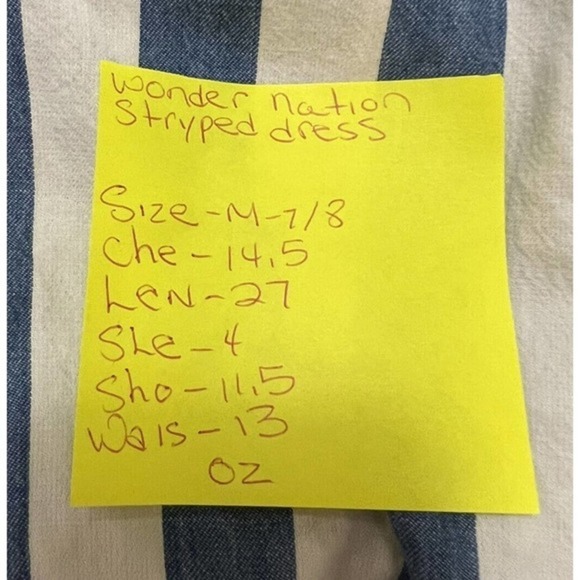 wonder nation
Stryped dress
Size-M-7/8
Che-14.5
LEN-27
SLe-4
Sho-11.5
Wais-13
OZ